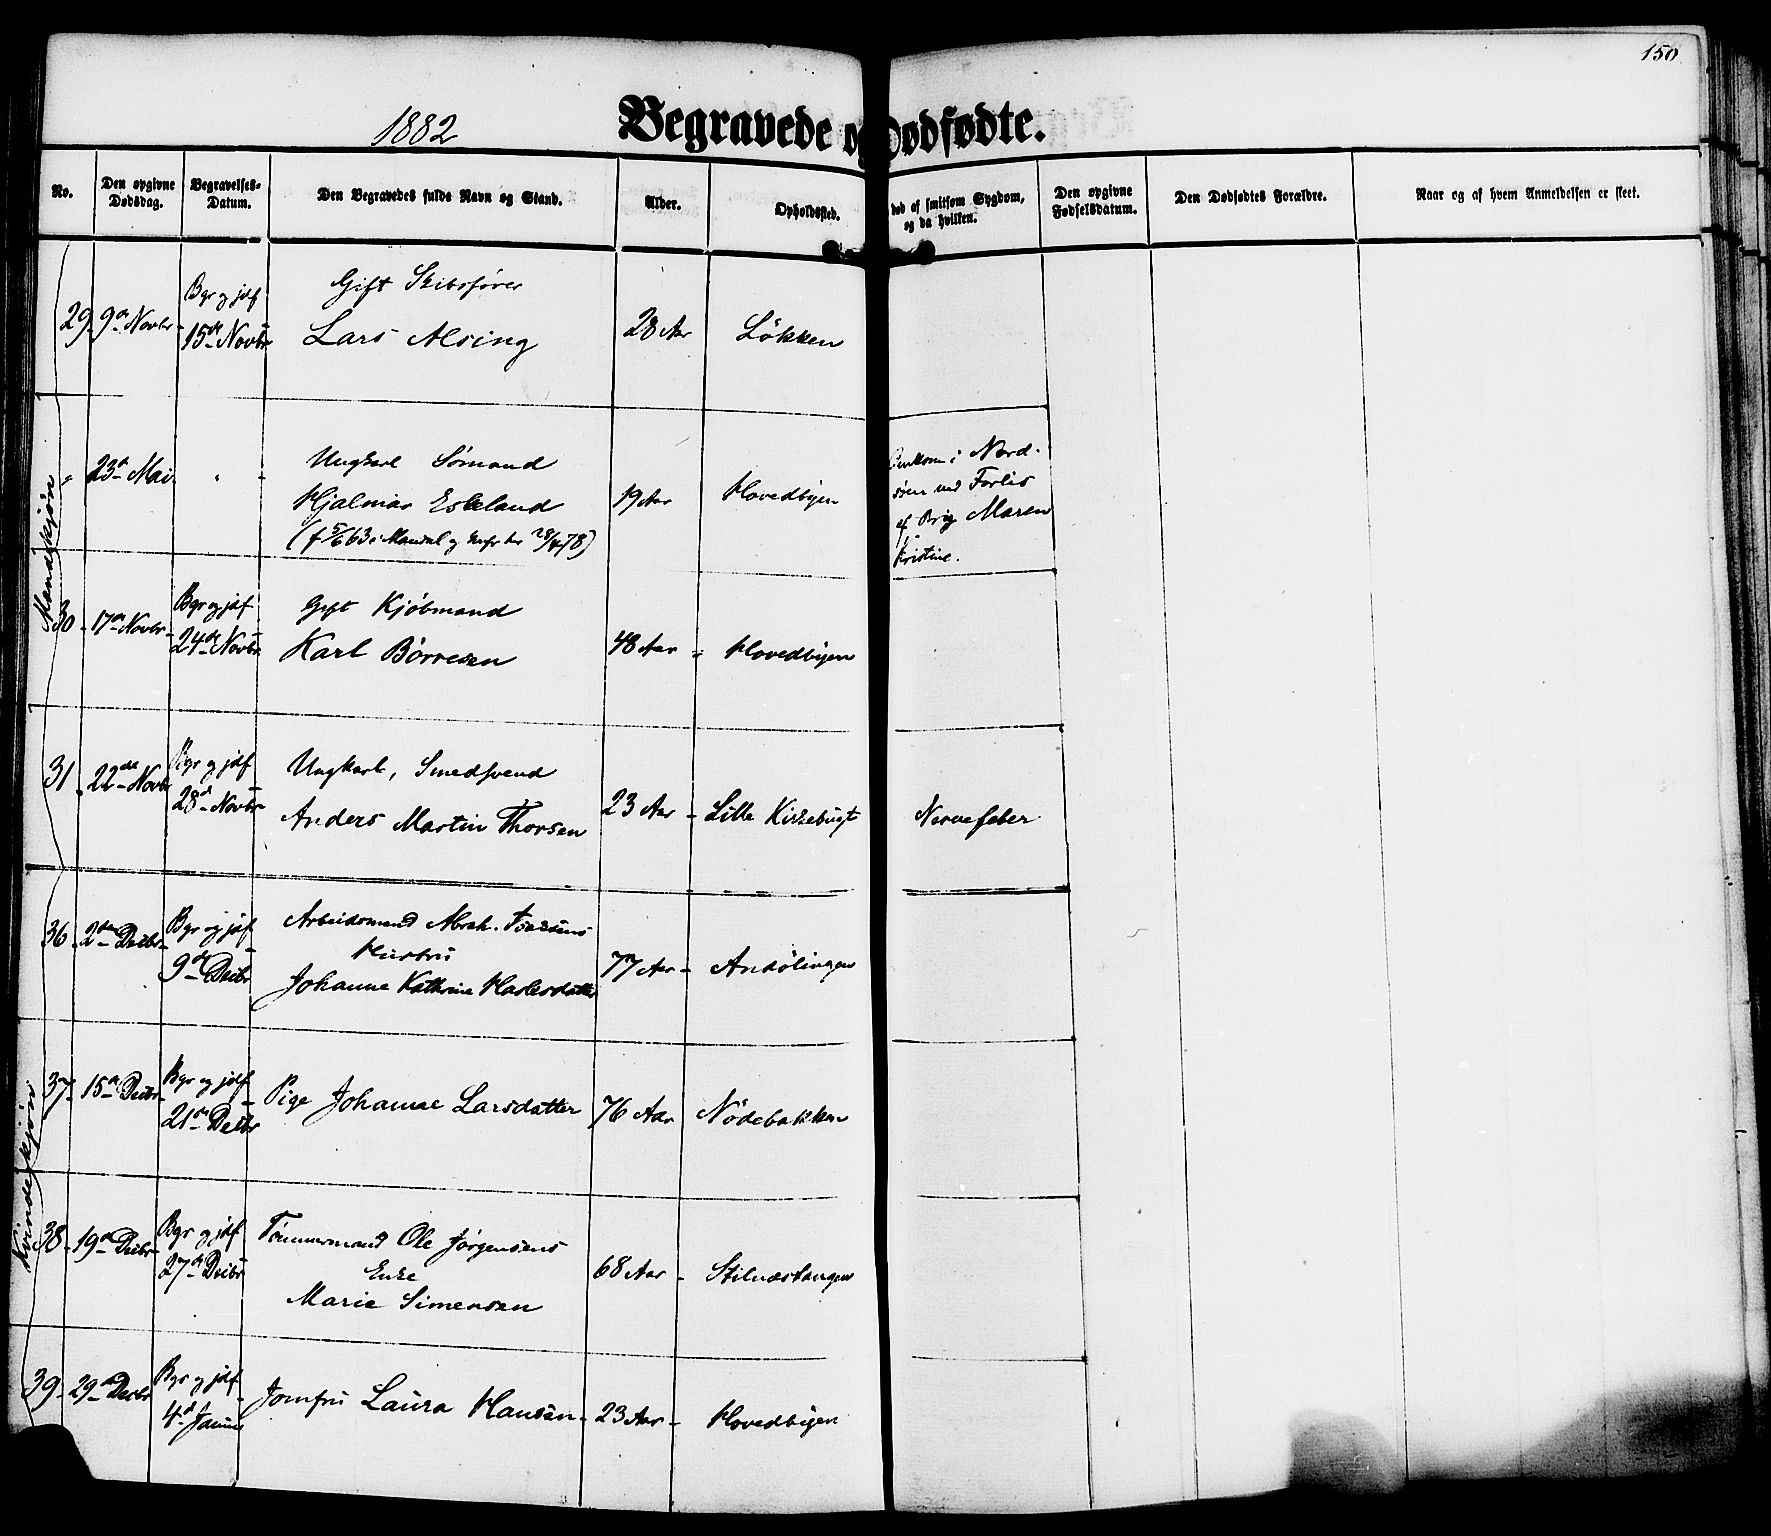 150
1882
Begravede og Dødfødte.
No.
Den opgivne Dødsdag.
Begravelses-Datum.
Den Begravedes fulde Navn og Stand.
Alder.
Opholdssted.
død af smitsom Sygdom, og da hvilken.
Den opgivne Fødselsdatum.
Den Dødfødtes Forældre.
Naar og af hvem Anmeldelsen er skeet.
Mandskjøn
29. 9de Novbr
Bgr og jdf
15de Novbr
Gift Skibsfører
Lars Alsing
28 Aar
Løkken
" 23de Mai " "
Ungkarl Sømand
Hjalmar Eskeland
(f 5/6 63 i Mandal og konfr her 28/4 78)
19 Aar
Hovedbyen
Omkom i Nord-
søen ved Forlis
af Brig Maren
Kristine.
30 - 17de Novbr -
Bgr og jdf
24de Novbr
Gift Kjøbmand
Karl Børresen
48 Aar -
Hovedbyen
31. 22de Novbr
Bgr og jdf
28de Novbr
Ungkarl, Smedsvend
Anders Martin Thorsen
23 Aar -
Lille Kirkebugt
Nervefeber
Kvindekjøn
36. 2den Decbr -
Bgr og jdf
9de Decbr
Arbeidsmand Abrah. Isaksens
Hustru
Johanne Kathrine
77 Aar -
37. 15de Decbr -
Bgr og jdf
21de Decbr
Pige Johanne Larsdatter
76 Aar
Nødebakken
38 - 19de Decbr -
Bgr og jdf
27de Decbr
Tømmermand Ole Jørgensens
Enke
Marie Simensen
68 Aar -
Stilnæstangen
39. 29de Decbr
Bgr og jdf
4de Januar
Jomfru Laura Hansen -
23 Aar -
Hovedbyen